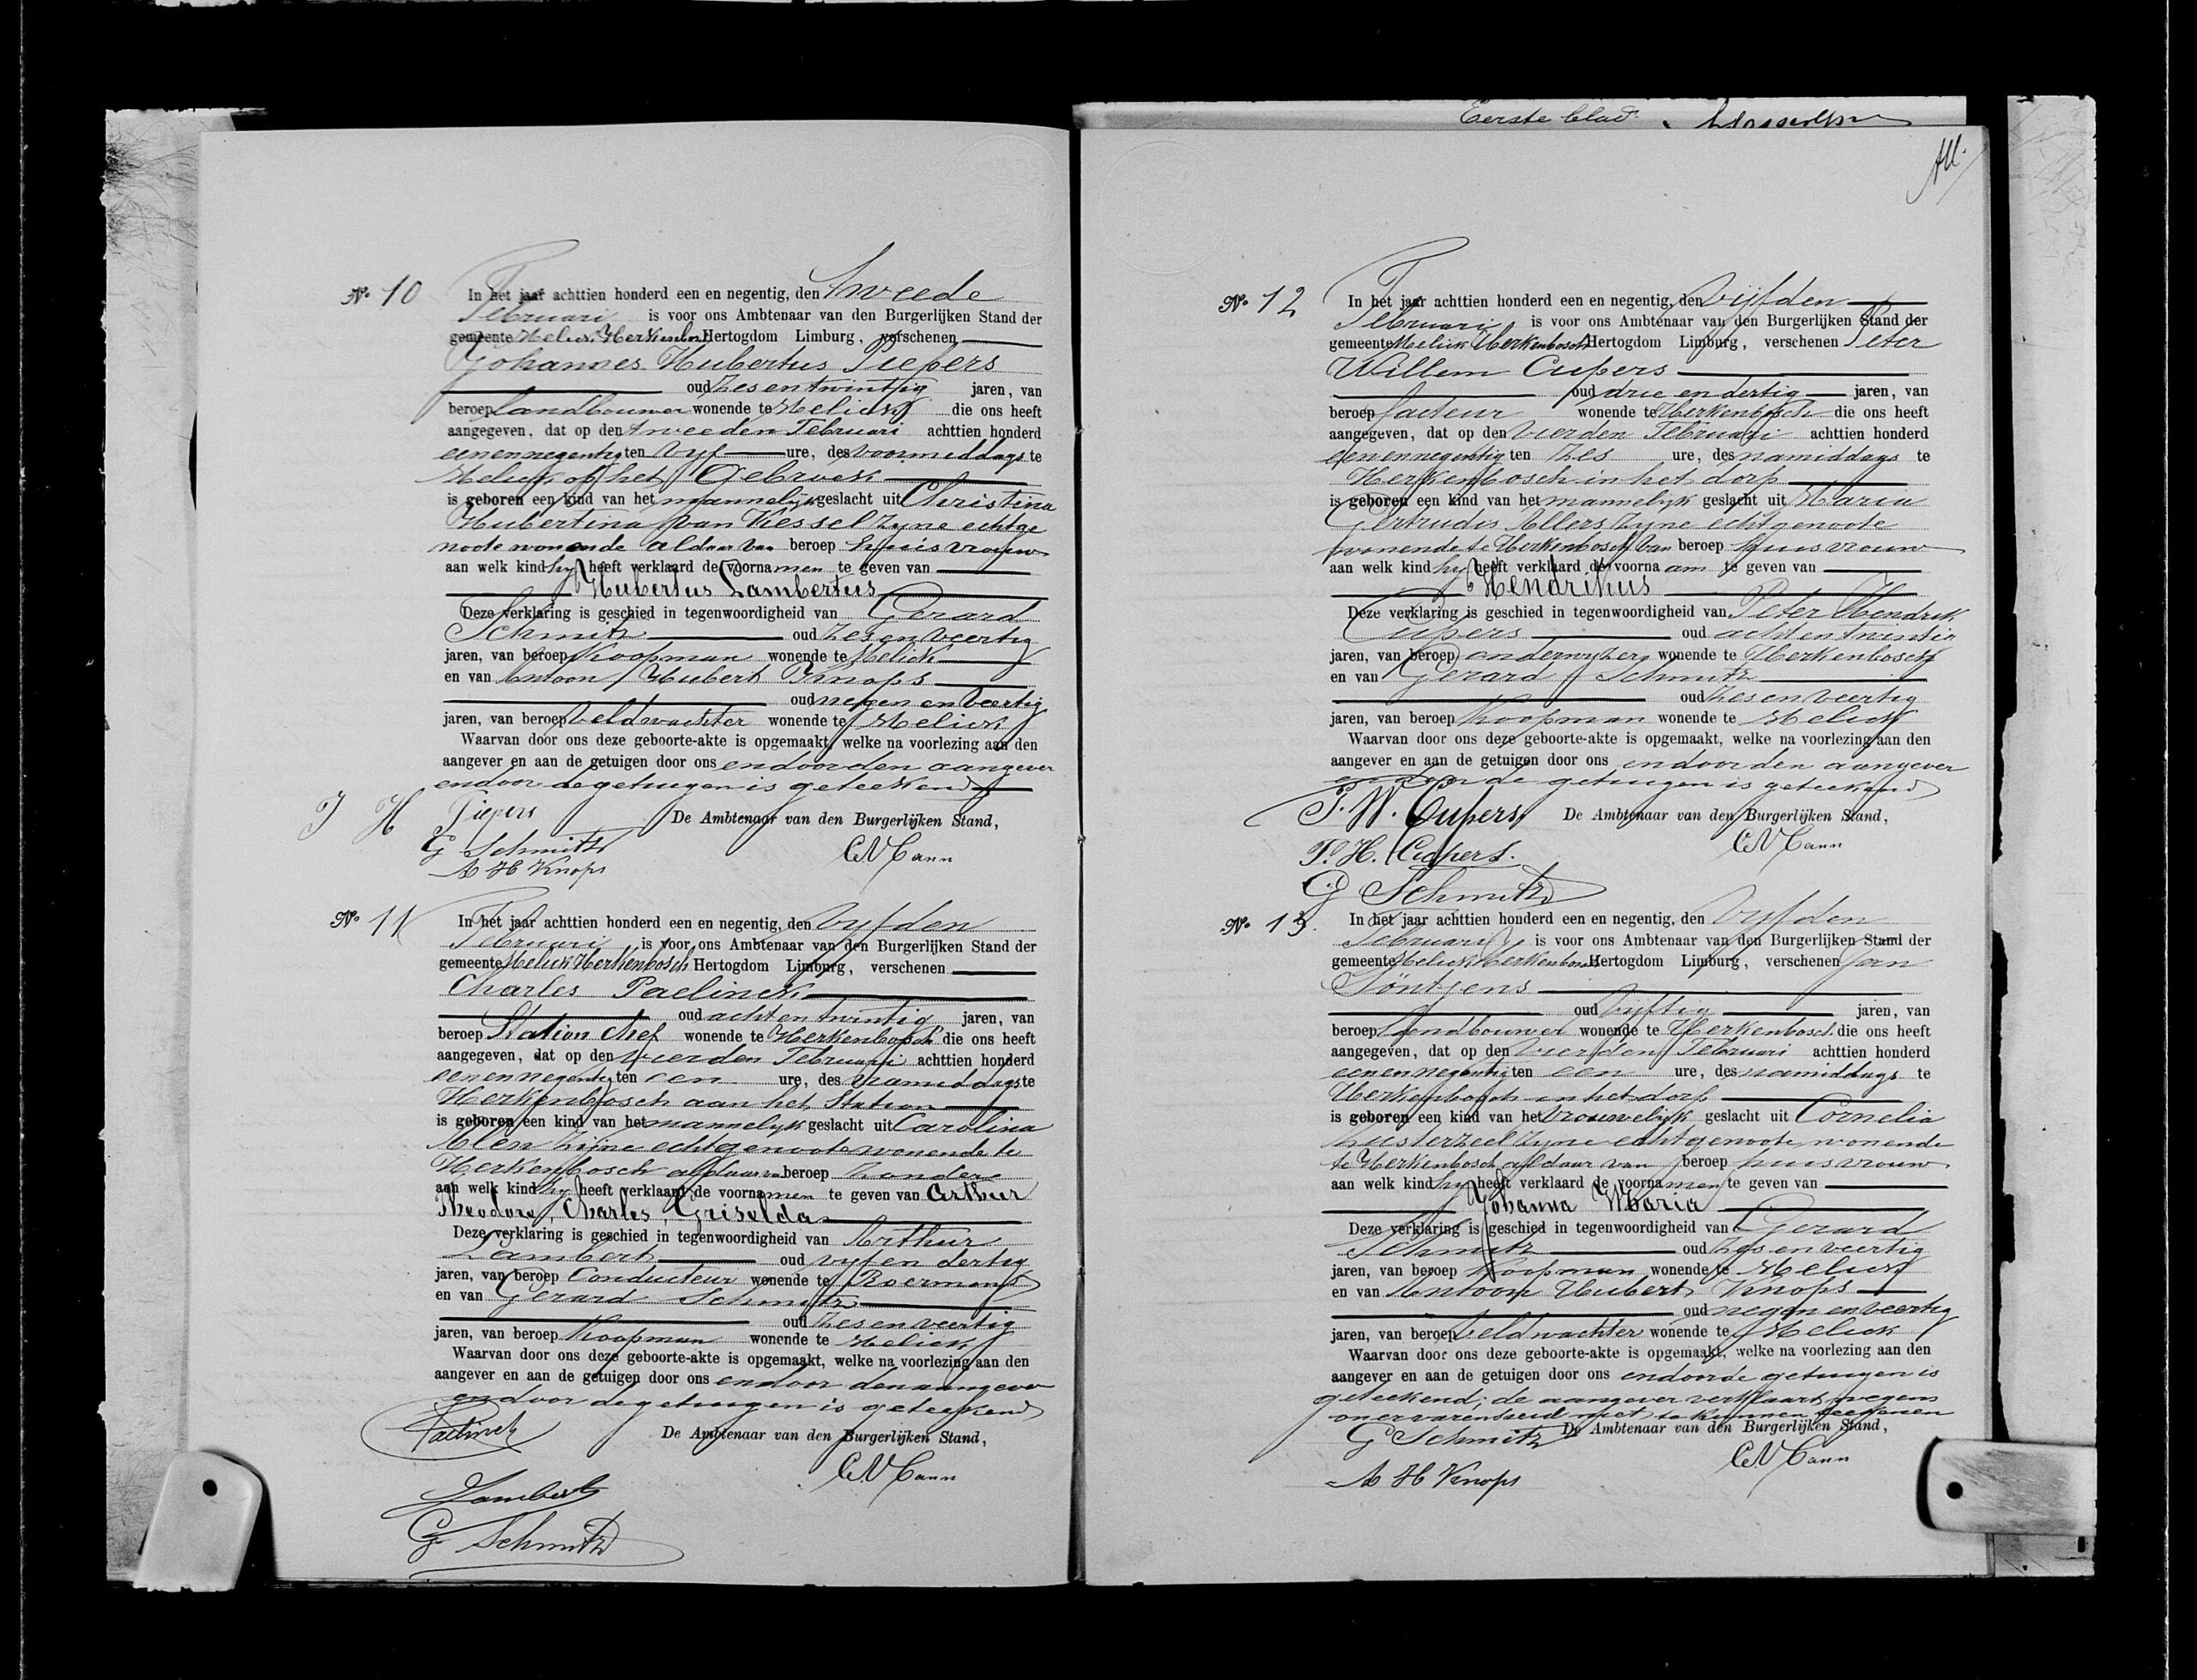 Eerste blad
No 10 In het jaar achttien honderd een en negentig, den tweede
Februari is voor ons Ambtenaar van den Burgerlijken Stand der
gemeente Melick Herkenbosch Hertogdom Limburg, verschenen
Johannes Hubertus Piepers
oud zes en twintig jaren, van
beroep landbouwer wonende te Melick die ons heeft
aangegeven, dat op den tweeden Februari achttien honderd
eenennegentig ten vijf ure, des voormiddags te
Melick op het Gebroek
is geboren een kind van het mannelijk geslacht uit Christina
Hubertina van Kessel zijne echtge
noote wonende aldaar van beroep huisvrouw
aan welk kind hij heeft verklaard de voornamen te geven van
Hubertus Lambertus
Deze verklaring is geschied in tegenwoordigheid van Gerard
Schmitz oud zes en veertig
jaren, van beroep Koopman wonende te Melick
en van Antoon Hubert Knops
oud negen en veertig
jaren, van beroep veldwachter wonende te Melick
Waarvan door ons deze geboorte-akte is opgemaakt, welke na voorlezing aan den
aangever en aan de getuigen door ons en door den aangever
en door de getuigen is geteekend
J H Piepers De Ambtenaar van den Burgerlijken Stand,
G Schmitz
A H Knops
No 11 In het jaar achttien honderd een en negentig, den vijfden
Februari is voor ons Ambtenaar van den Burgerlijken Stand der
gemeente Melick Herkenbosch Hertogdom Limburg, verschenen
Charles Paelinck
oud acht en twintig jaren, van
beroep Station Chef wonende te Herkenbosch die ons heeft
aangegeven, dat op den vierden Februari achttien honderd
eenennegentig ten een ure, des namiddags te
Herkenbosch aan het Station
is geboren een kind van het mannelijk geslacht uit Carolina
Alen zijne echtgenoote wonende te
Herkenbosch aldaar van beroep zonder
aan welk kind hij heeft verklaard de voornamen te geven van Arthur
Theodore, Charles, Griselda
Deze verklaring is geschied in tegenwoordigheid van Arthur
Lambert oud vijf en dertig
jaren, van beroep Conducteur wonende te Roermond
en van Gerard Schmitz
oud zes en veertig
jaren, van beroep Koopman wonende te Melick
Waarvan door ons deze geboorte-akte is opgemaakt, welke na voorlezing aan den
aangever en aan de getuigen door ons en door den aangever
en door de getuigen is geteekend
Paelinck De Ambtenaar van den Burgerlijken Stand,
Lambert
G Schmitz
No 12 In het jaar achttien honderd een en negentig, den vijfden
Februari is voor ons Ambtenaar van den Burgerlijken Stand der
gemeente Melick Herkenbosch Hertogdom Limburg, verschenen Peter
Willem Cupers
oud drie en dertig jaren, van
beroep facteur wonende te Herkenbosch die ons heeft
aangegeven, dat op den vierden Februari achttien honderd
eenennegentig ten zes ure, des namiddags te
Herkenbosch in het dorp
is geboren een kind van het mannelijk geslacht uit Maria
Gertrudis Allers zijne echtgenoote
wonende te Herkenbosch van beroep huisvrouw
aan welk kind hij heeft verklaard de voornaam te geven van
Hendrikus
Deze verklaring is geschied in tegenwoordigheid van Peter Hendrik
Cupers oud acht en twintig
jaren, van beroep onderwijzer wonende te Herkenbosch
en van Gerard Schmitz
oud zes en veertig
jaren, van beroep Koopman wonende te Melick
Waarvan door ons deze geboorte-akte is opgemaakt, welke na voorlezing aan den
aangever en aan de getuigen door ons en door den aangever
en door de getuigen is geteekend
P. W. Cupers De Ambtenaar van den Burgerlijken Stand,
P. H. Cupers.
G Schmitz
No 13. In het jaar achttien honderd een en negentig, den vijfden
Februari is voor ons Ambtenaar van den Burgerlijken Stand der
gemeente Melick Herkenbosch Hertogdom Limburg, verschenen Jan
Töntjens
oud vijftig jaren, van
beroep landbouwer wonende te Herkenbosch die ons heeft
aangegeven, dat op den vierden Februari achttien honderd
eenennegentig ten een ure, des namiddags te
Herkenbosch in het dorp
is geboren een kind van het vrouwelijk geslacht uit Cornelia
Lusterzeel zijne echtgenoote wonende
te Herkenbosch aldaar van beroep huisvrouw
aan welk kind hij heeft verklaard de voornamen te geven van
Johanna Maria
Deze verklaring is geschied in tegenwoordigheid van Gerard
Schmitz oud zes en veertig
jaren, van beroep Koopman wonende te Melick
en van Antoon Hubert Knops
oud negen en veertig
jaren, van beroep veldwachter wonende te Melick
Waarvan door ons deze geboorte-akte is opgemaakt, welke na voorlezing aan den
aangever en aan de getuigen door ons en door de getuigen is
geteekend; de aangever verklaart wegens
onervarenheid niet te kunnen teekenen
G Schmitz De Ambtenaar van den Burgerlijken Stand,
A H Knops